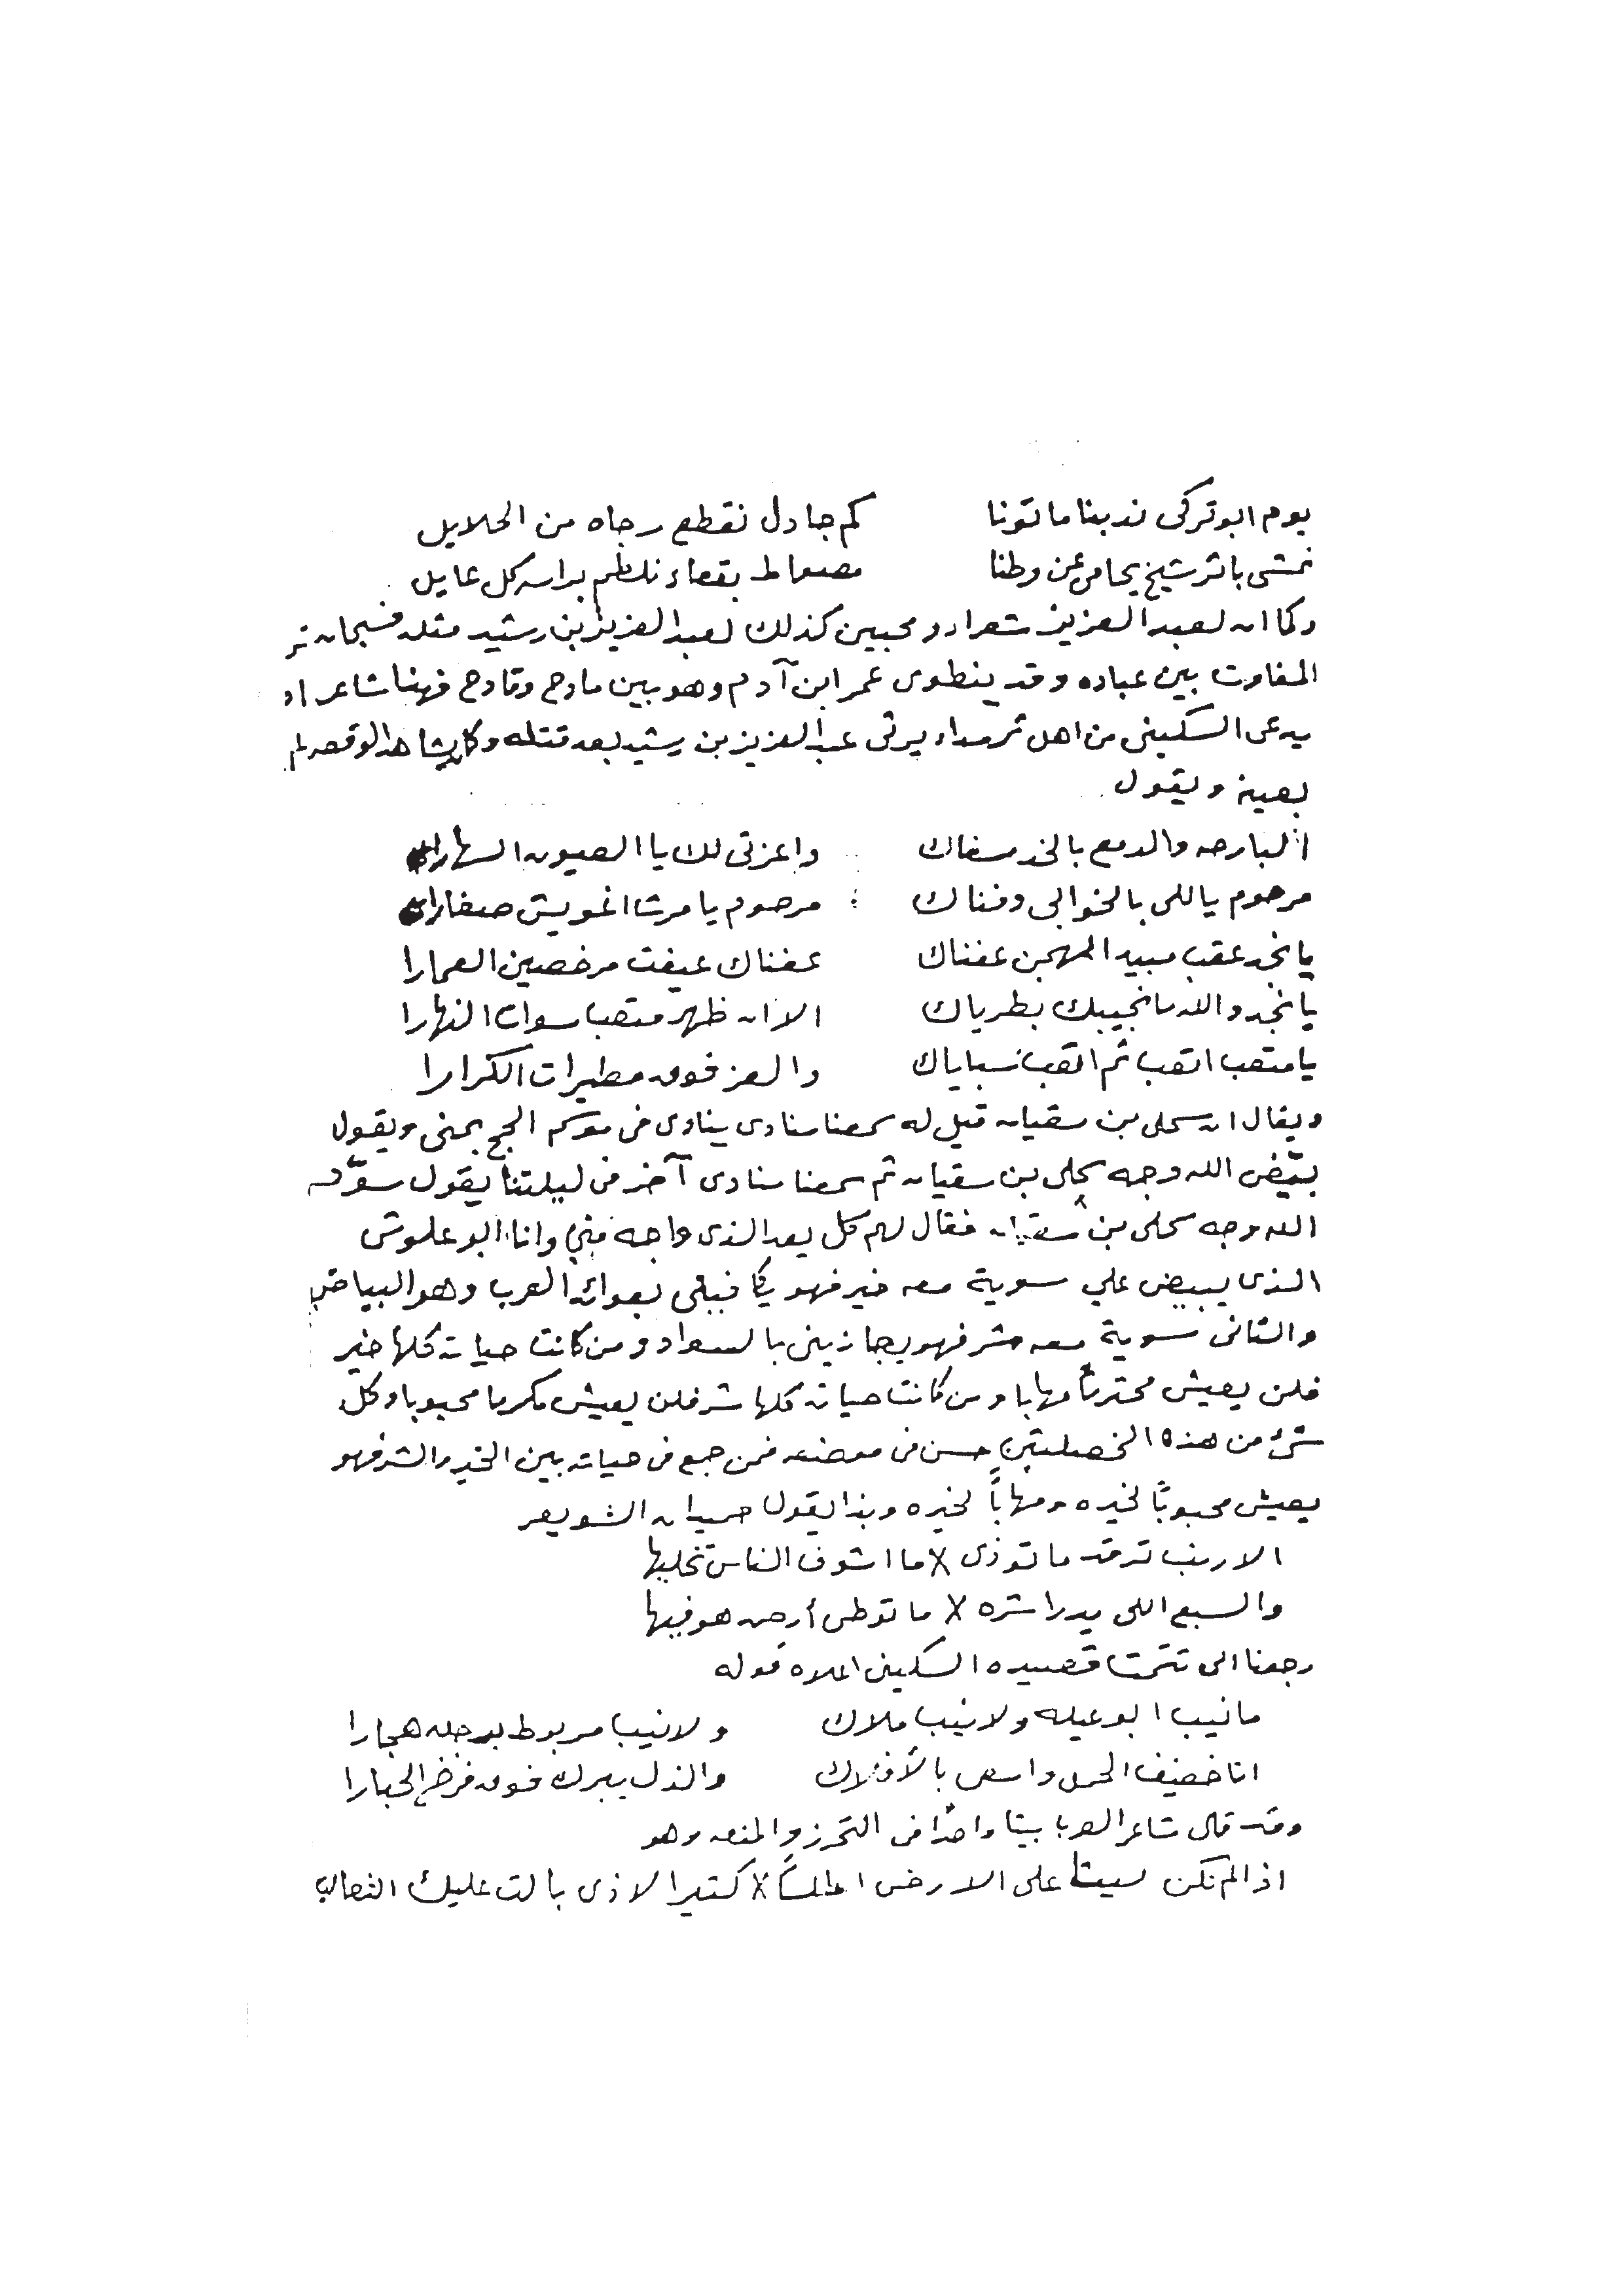 يوم ابو تركى ندبنا ما تونا كم جادل نقطع رجاه من الحلايل
نمشى باثر شيخ يحامى عن وطنا مصعاط بقعاء نلطم براسه كل عايل
وكما ان لعبد العزيز شعراء ومحبين كذلك لعبد العزيز بن رشيد مثله فسبحان
المفاوت بين عباده وقد ينطوى عمر ابن آدم وهو بين مادح وقادح فهنا شاعر
يدعى السكينى من اهل ثرمداء يرثى عبد العزيز بن رشيد بعد قتله وكان شاهد الوقعه
بعينه ويقول
البارحه والدمع بالخد سفاك واعزتى لك يا العيون السهارا
مرحوم ياللى بالخوالى دفناك مرحوم يا مرشا اغويش صغارا
يا نجد عقب مبيد المهجن عفناك عفناك عيفت مرخصين العمارا
يا نجد والله ما نجيبك بطرياك الا ان ظهر متعب سوات النهارا
يا متعب اتعب ثم اتعب سباياك والعز فوق مطيرات الكرارا
ويقال ان سحلى بن سقيان قيل له سمعنا منادى ينادى فى موسم الحج بمنى ويقول
بيّض الله وجه سحلى بن سقيان ثم سمعنا منادى آخر فى ليلتنا يقول سوّد
الله وجه سحلى بن سقيان فقال لهم كل يعد الذى واجه منى وانا ابو علوش
الذى يبيض علي سوية معه خير فهو يكافينى بعوائد العرب وهو البياض
والثانى سوية معه شر فهو يجازينى بالسواد ومن كانت حياته كلها خير
فلن يعيش محترماً مهابا ومن كانت حياته كلها شر فلن يعيش مكرما محبوبا وكل
شئ من هذه الخصلتين حسن فى موضعه فمن جمع فى حياته بين الخير والشر فهو
يعيش محبوبًا لخيره ومهاباً لخيره وبذا يقول حميدان الشويعر
الارنب ترقد ما توذى × ما اشوف الناس تخليها
والسبع اللى يدرا شره × ما توطى أرض هو فيها
رجعنا الى تتمت قصيده السكينى اعلاه قوله
مانيب ابو عيله ولا نيب ملاك ولا نيب مربوط برجله هجارا
انا خفيف الحمل واسعى بالأفلاك والذل يبرك فوق فرخ الحبارا
وقد قال شاعر العرب بيتا واحدًا فى التحرز والمنعه وهو
اذا لم تكن ليثا على الارض اطلساً × كثير الاذى بالت عليك الثعالب